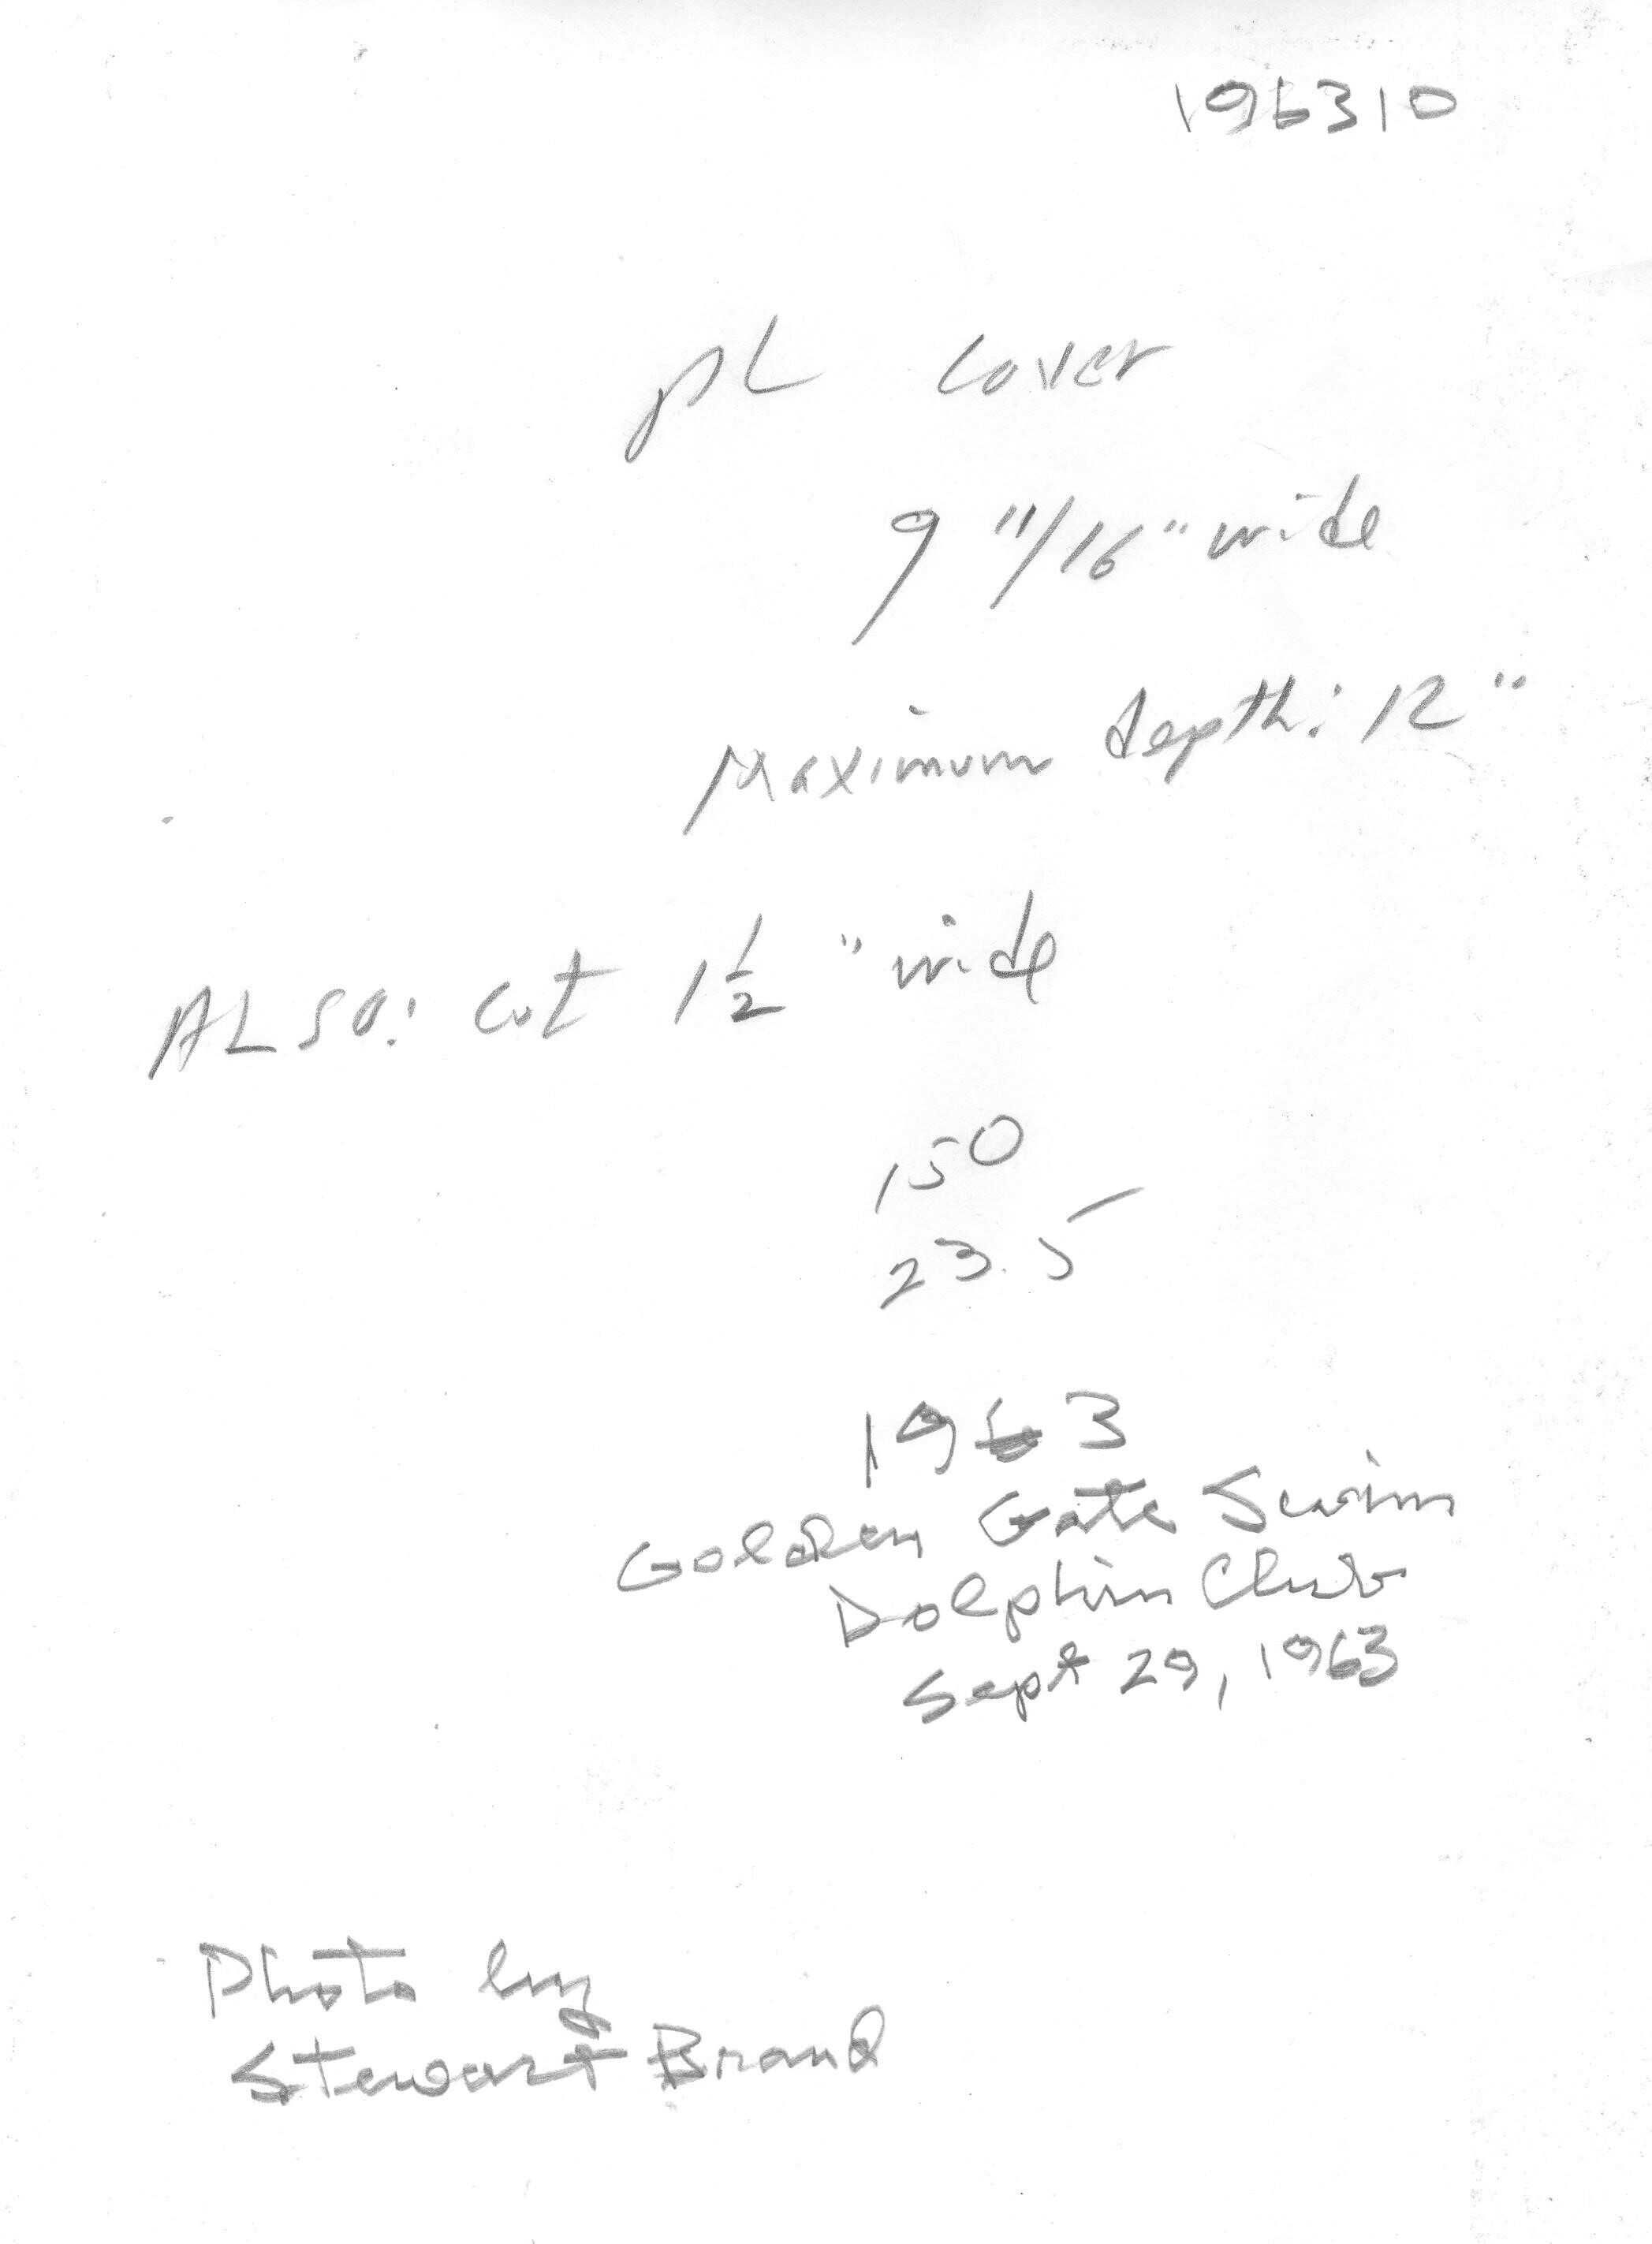 196310
pL cover
9 11/16" wide
Maximum depth: 12"
ALSO: cut 1 1/2" wide
150
23.5
1963
Golden Gate Swim
Dolphin Club
Sept 29, 1963
Photo by
Stewart Brand